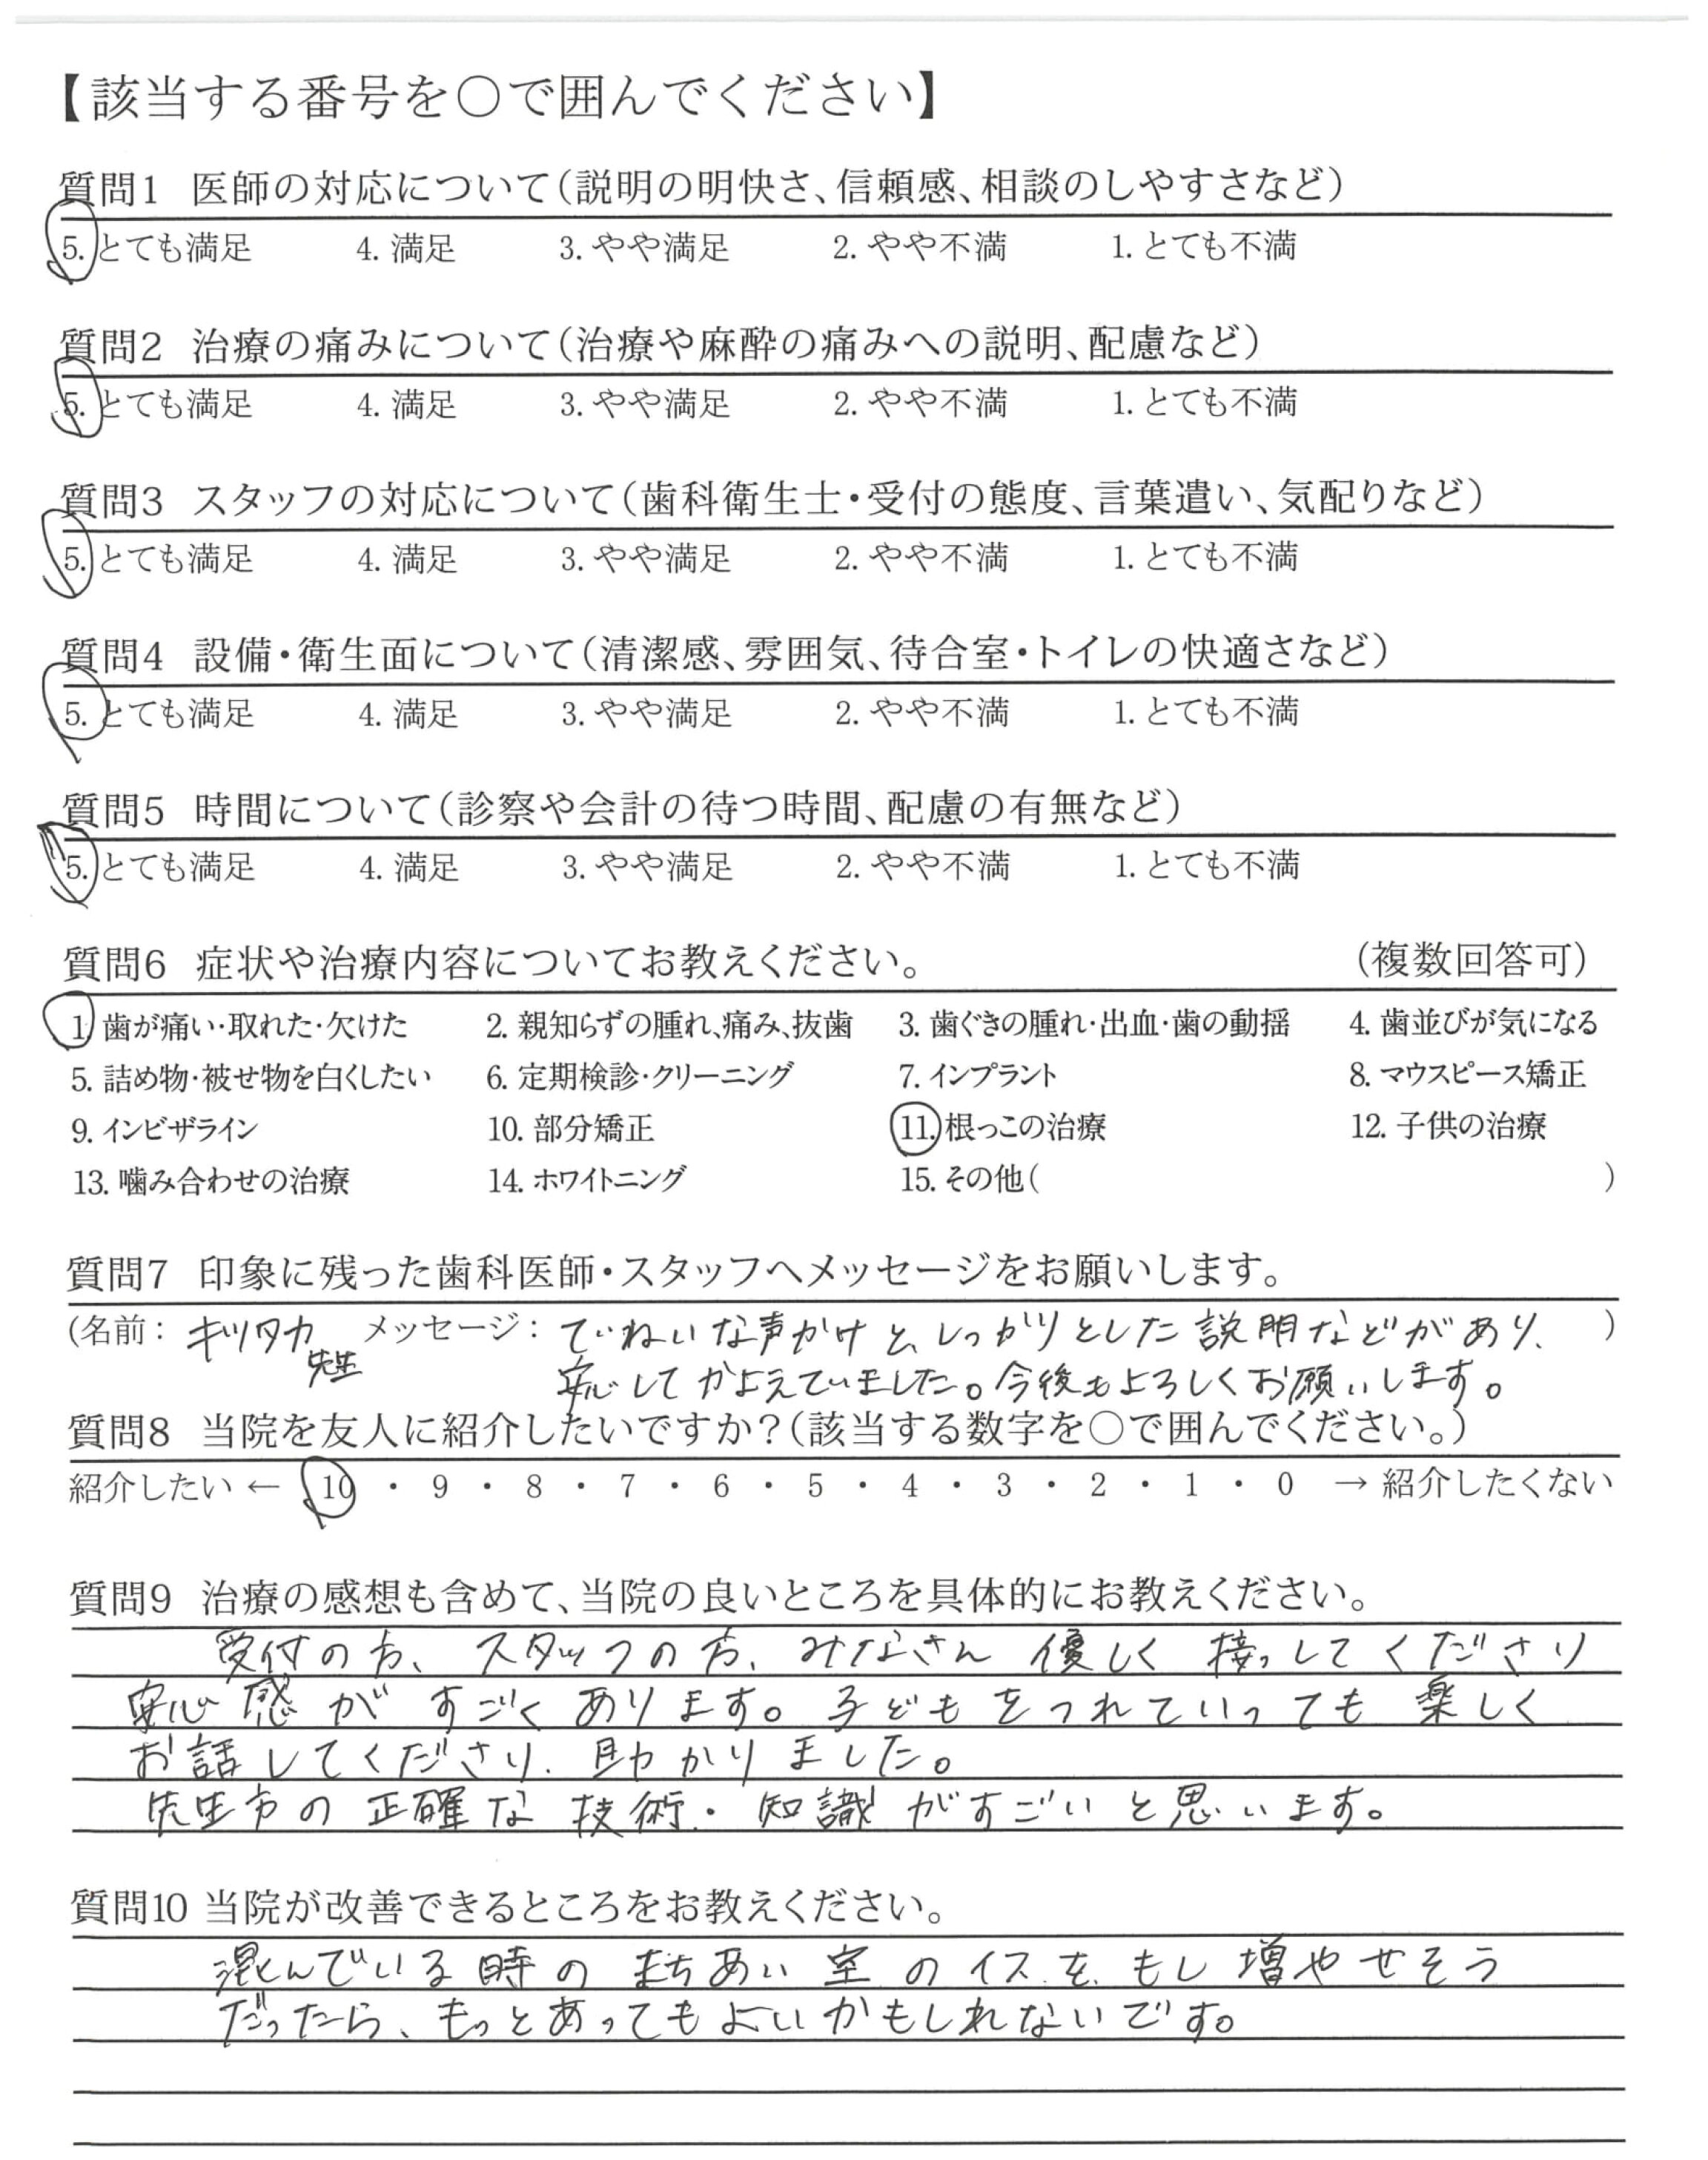 【該当する番号を○で囲んでください】
質問1 医師の対応について(説明の明快さ、信頼感、相談のしやすさなど)
5. とても満足 4. 満足 3. やや満足 2. やや不満 1. とても不満
質問2 治療の痛みについて(治療や麻酔の痛みへの説明、配慮など)
5. とても満足 4. 満足 3. やや満足 2. やや不満 1. とても不満
質問3 スタッフの対応について(歯科衛生士・受付の態度、言葉遣い、気配りなど)
5. とても満足 4. 満足 3. やや満足 2. やや不満 1. とても不満
質問4 設備・衛生面について(清潔感、雰囲気、待合室・トイレの快適さなど)
5. とても満足 4. 満足 3. やや満足 2. やや不満 1. とても不満
質問5 時間について(診察や会計の待つ時間、配慮の有無など)
5. とても満足 4. 満足 3. やや満足 2. やや不満 1. とても不満
質問6 症状や治療内容についてお教えください。 (複数回答可)
1. 歯が痛い・取れた・欠けた 2. 親知らずの腫れ、痛み、抜歯 3. 歯ぐきの腫れ・出血・歯の動揺 4. 歯並びが気になる
5. 詰め物・被せ物を白くしたい 6. 定期検診・クリーニング 7. インプラント 8. マウスピース矯正
9. インビザライン 10. 部分矯正 11. 根っこの治療 12. 子供の治療
13. 噛み合わせの治療 14. ホワイトニング 15. その他( )
質問7 印象に残った歯科医師・スタッフへメッセージをお願いします。
(名前: キリタカ先生 メッセージ: ていねいな声かけと、しっかりとした説明などがあり、 )
安心してかよえていました。今後もよろしくお願いします。
質問8 当院を友人に紹介したいですか?(該当する数字を○で囲んでください。)
紹介したい ← 10 ・ 9 ・ 8 ・ 7 ・ 6 ・ 5 ・ 4 ・ 3 ・ 2 ・ 1 ・ 0 → 紹介したくない
質問9 治療の感想も含めて、当院の良いところを具体的にお教えください。
受付の方、スタッフの方、みなさん優しく接っしてくださり
安心感がすごくあります。子どもをつれていっても楽しく
お話してくださり、助かりました。
先生方の正確な技術・知識がすごいと思います。
質問10 当院が改善できるところをお教えください。
混んでいる時のまちあい室のイスを、もし増やせそう
だったら、もっとあってもよいかもしれないです。